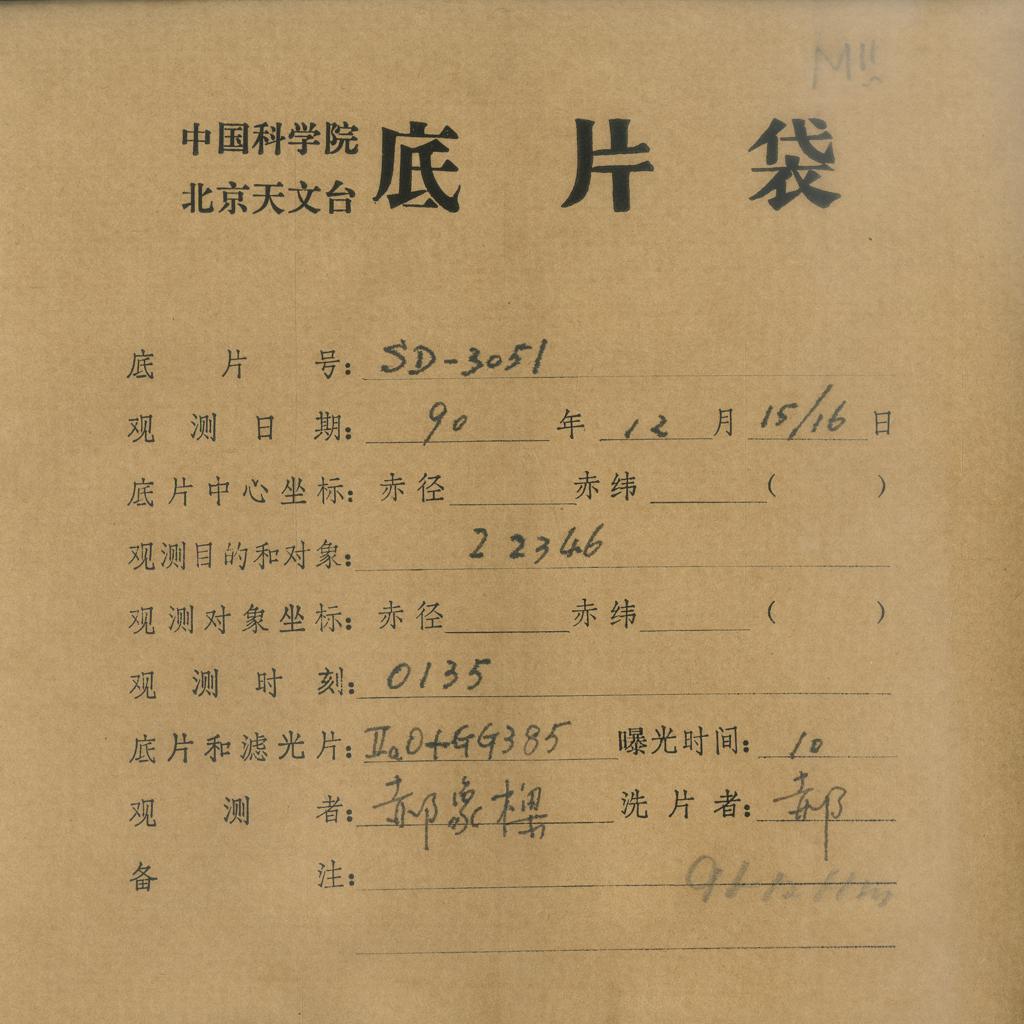 中国科学院
北京天文台
底片袋
底片号：SD-3051
观测日期：90年12月15/16日
底片中心坐标：赤径 赤纬 （ ）
观测目的和对象：22346
观测对象坐标：赤径 赤纬 （ ）
观测时刻：0135
底片和滤光片：IIaO+GG385 曝光时间：10
观测者：郝象樑 洗片者：郝
备注：